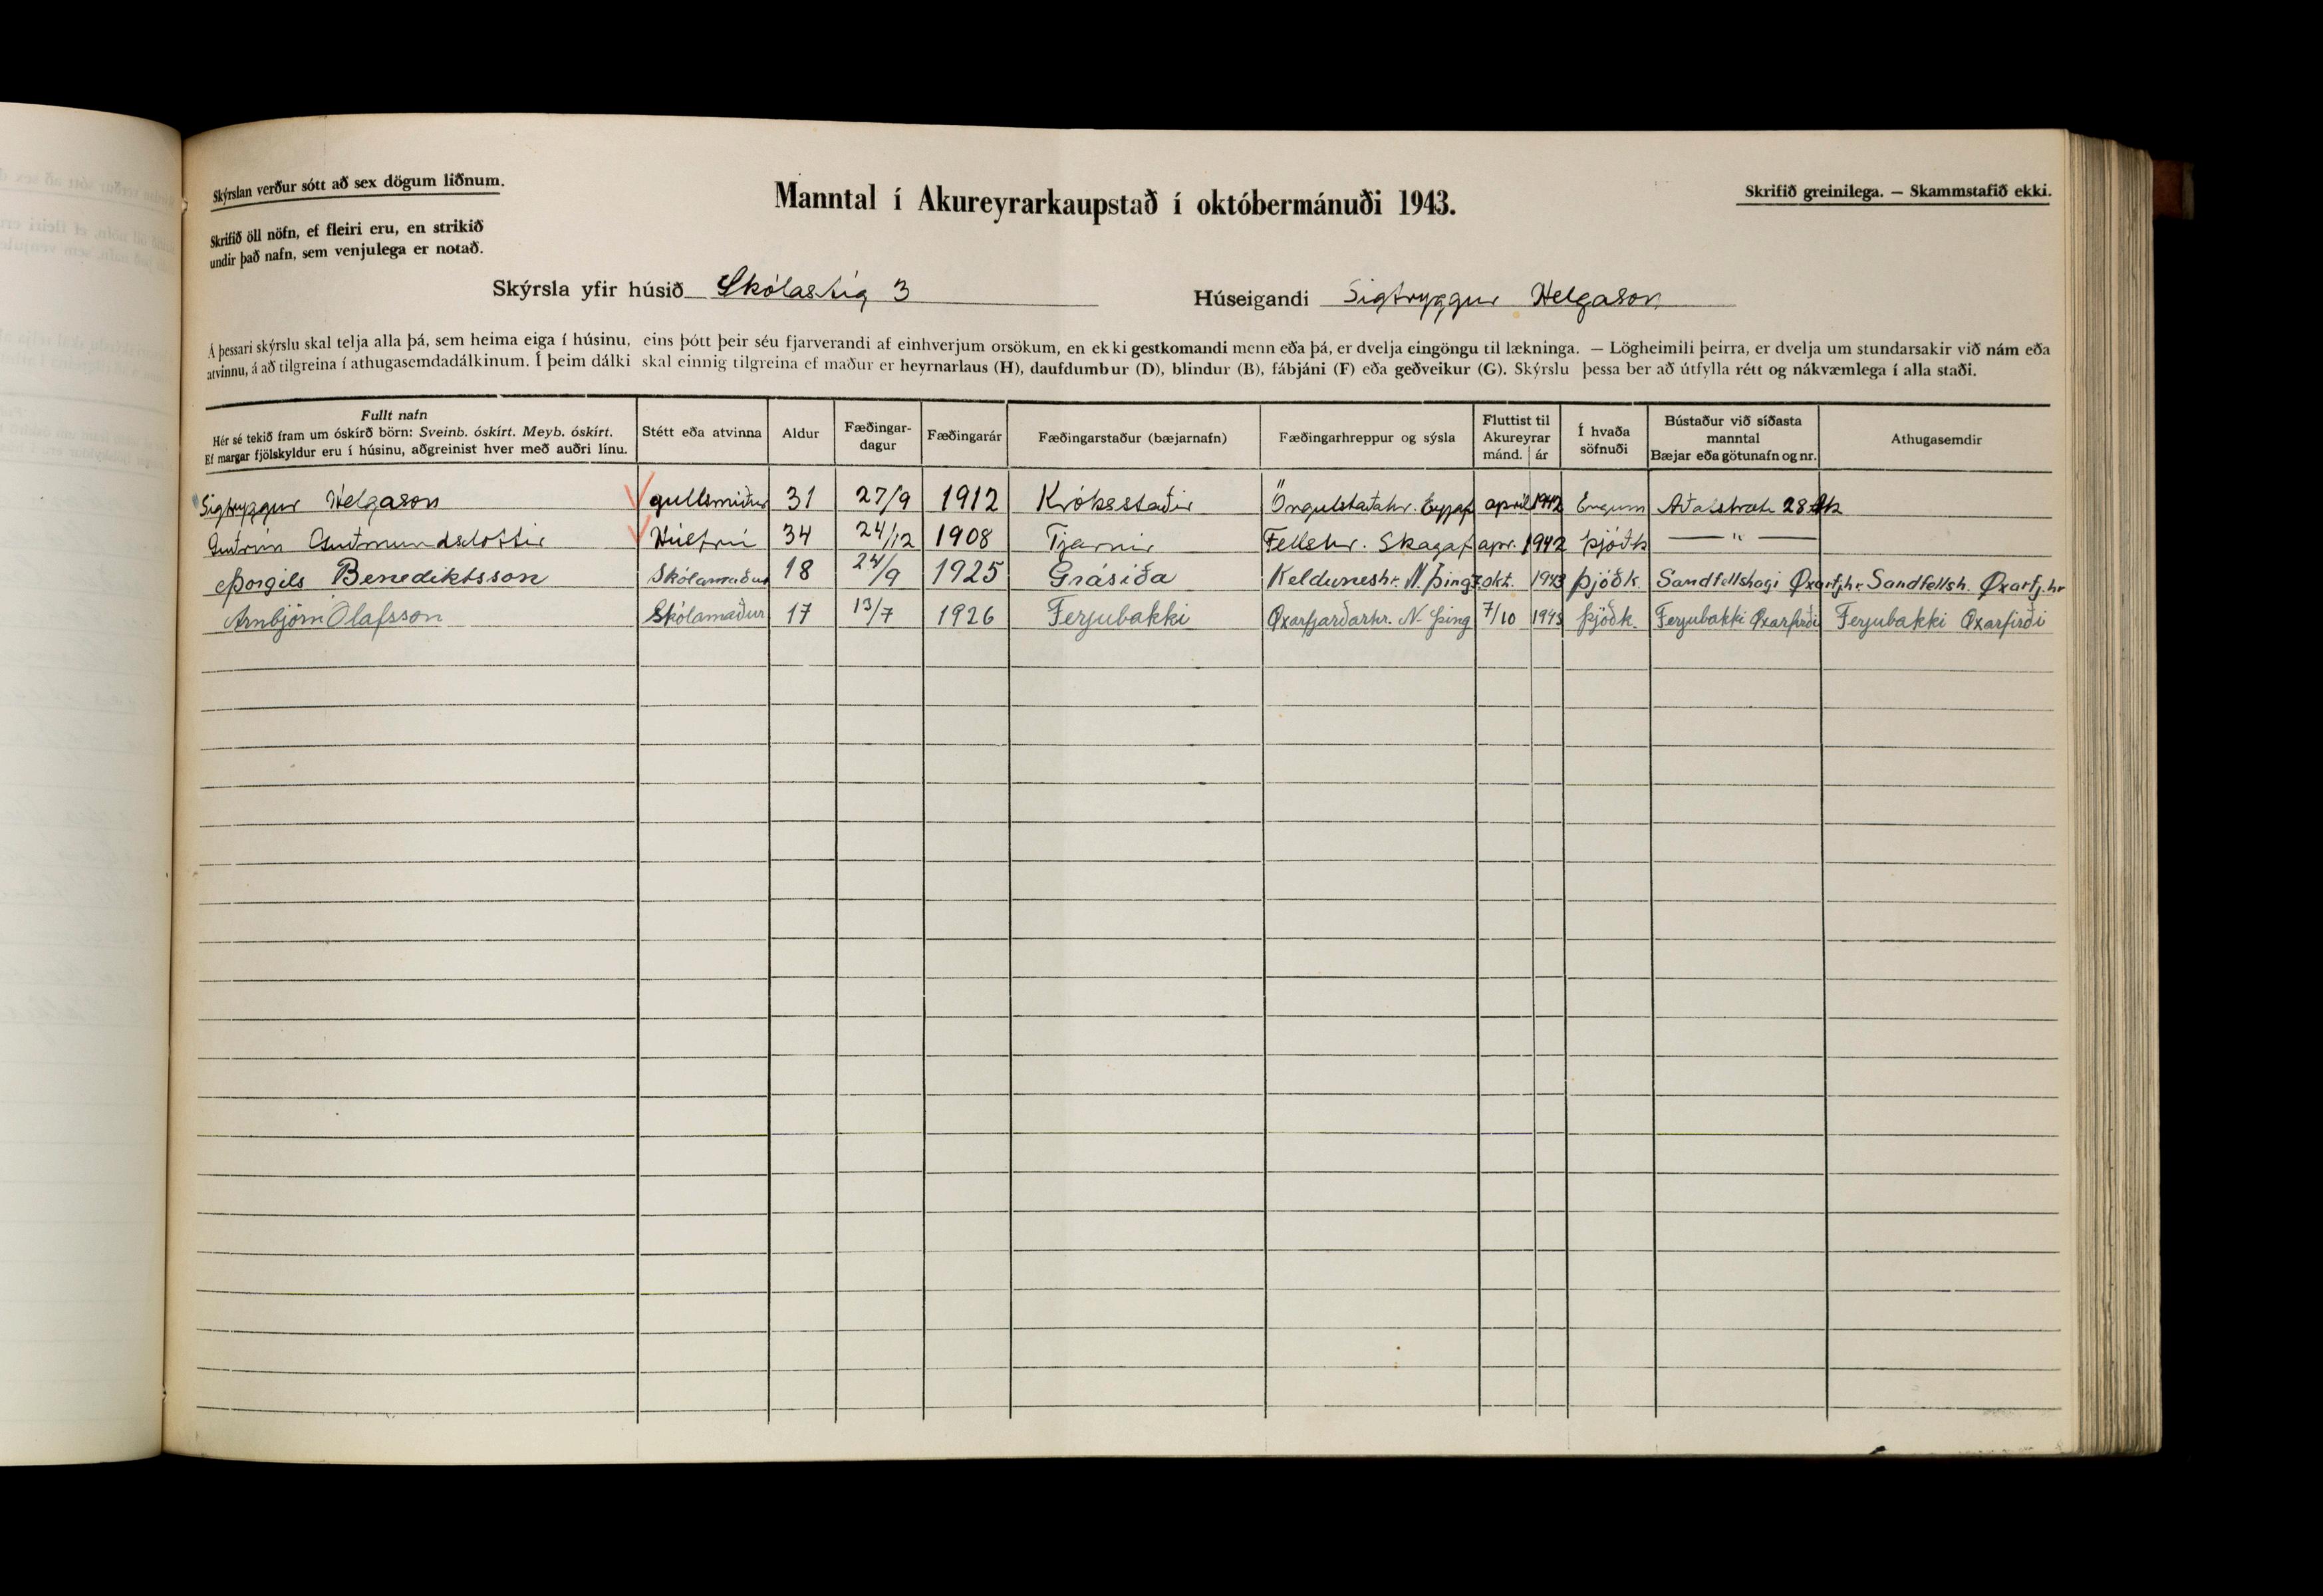 Skýrslan verður sótt að sex dögum liðnum.
Skrifið öll nöfn, ef fleiri eru, en strikið
undir það nafn, sem venjulega er notað.
Manntal í Akureyrarkaupstað í októbermánuði 1943.
Skrifið greinilega. — Skammstafið ekki.
Skýrsla yfir húsið Skólastíg 3
Húseigandi Sigtryggur Helgason
Á þessari skýrslu skal telja alla þá, sem heima eiga í húsinu, eins þótt þeir séu fjarverandi af einhverjum orsökum, en ekki gestkomandi menn eða þá, er dvelja eingöngu til lækninga. — Lögheimili þeirra, er dvelja um stundarsakir við nám eða
atvinnu, á að tilgreina í athugasemdadálkinum. Í þeim dálki skal einnig tilgreina ef maður er heyrnarlaus (H), daufdumbur (D), blindur (B), fábjáni (F) eða geðveikur (G). Skýrslu þessa ber að útfylla rétt og nákvæmlega í alla staði.
Fullt nafn
Hér sé tekið fram um óskírð börn: Sveinb. óskírt. Meyb. óskírt.
Ef margar fjölskyldur eru í húsinu, aðgreinist hver með auðri línu.
Stétt eða atvinna
Aldur
Fæðingar-
dagur
Fæðingarár
Fæðingarstaður (bæjarnafn)
Fæðingarhreppur og sýsla
Fluttist til
Akureyrar
mánd. ár
Í hvaða
söfnuði
Bústaður við síðasta
manntal
Bæjar eða götunafn og nr.
Athugasemdir
Sigtryggur Helgason gullsmiður 31 27/9 1912 Króksstaðir Öngulstaðahr. Eyjaf apríl 1942 Engum Aðalstræti 28 Ak
Guðrún Guðmundsdóttir Húsfrú 34 24/12 1908 Tjarnir Fellshr. Skagaf apr. 1942 Þjóðk — " —
Þorgils Benediktsson Skólamaður 18 24/9 1925 Grásíða Kelduneshr. N. Þing. okt. 1943 Þjóðk. Sandfellshagi Øxarfj.hr. Sandfellsh. Øxarfj.hr
Arnbjörn Ólafsson Skólamaður 17 13/7 1926 Ferjubakki Øxarfjarðarhr. N-Þing 7/10 1943 Þjóðk. Ferjubakki Øxarfirði Ferjubakki Øxarfirði